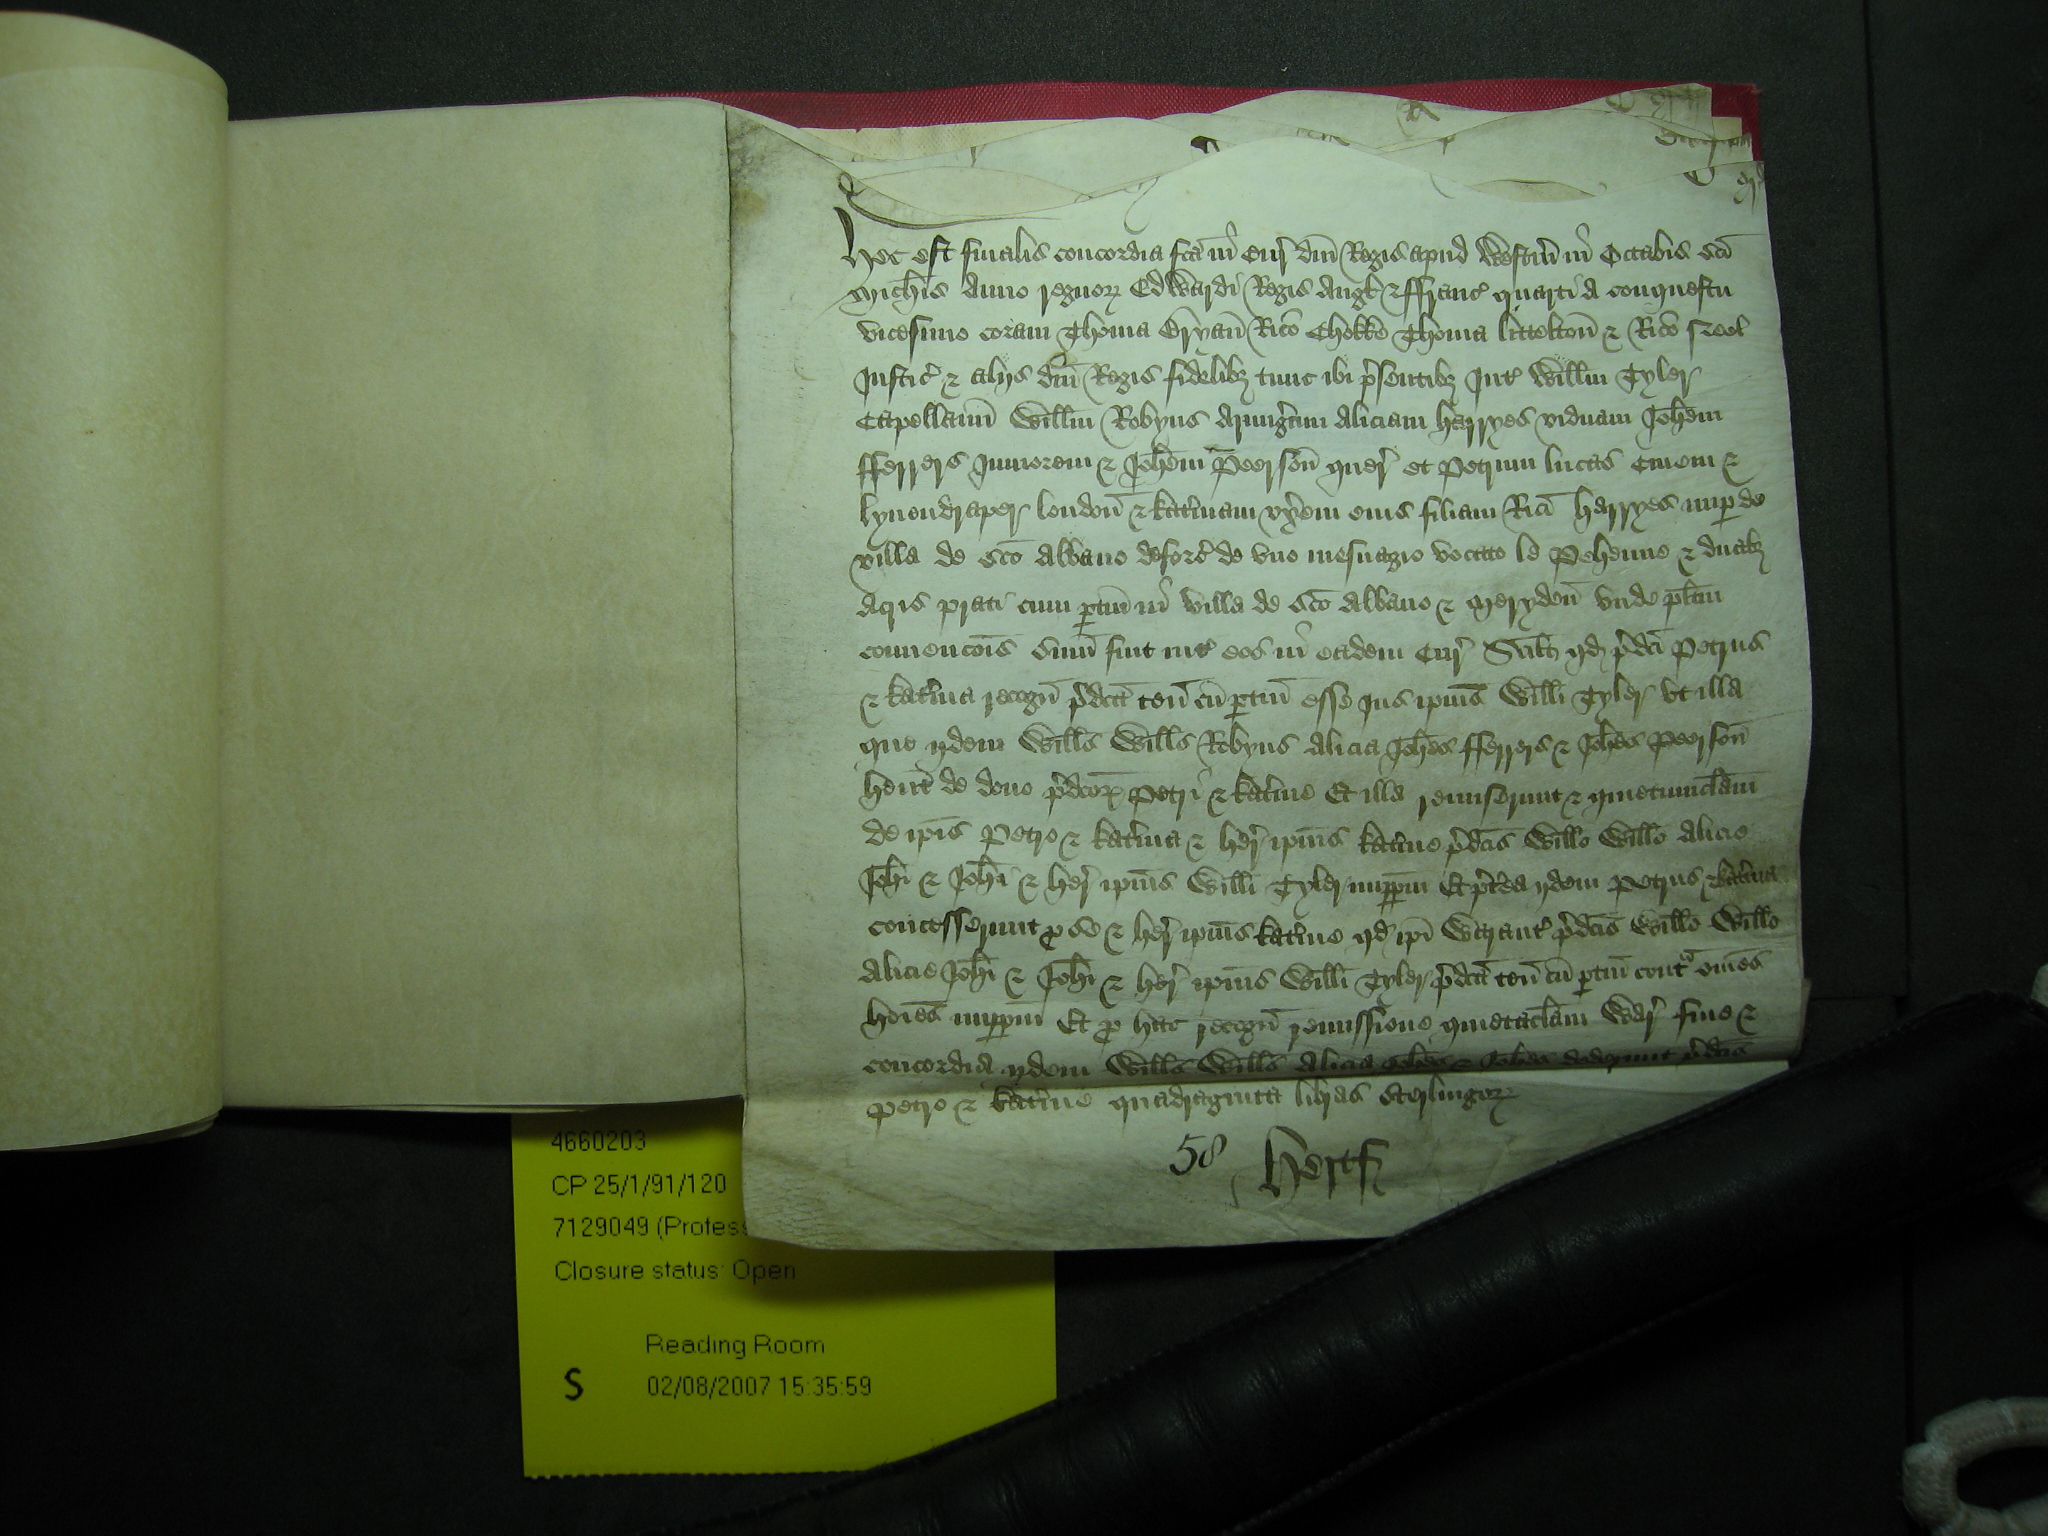 Hec est finalis concordia fc̄a in Cur̄ dn̄i Regis apud Westm̄ in Octabis Sc̄i
Mich̄is Anno regnoꝝ Edwardi Regis Angl̄ ⁊ ffranc̄ quarti a conquestu
vicesimo coram Thoma Bryan̄ Ric̄o Chokke Thoma Littelton̄ ⁊ Ric̄o Neel
Justic̄ ⁊ alijs dn̄i Regis fidelibꝫ tunc ibi p̄sentibꝫ Int̄ Will̄m Tyler
Capellanū Will̄m Robyns Armiḡum Aliciam Harryes viduam Joh̄em
fferrers Juniorem ⁊ Joh̄em Peerson̄ quer̄ et Petrum Lucas Ciuem ⁊
lynendraper london̄ ⁊ Kat̄inam vx̄em eius filiam Ric̄i Harryes nup̄ de
villa de Sc̄o Albano deforc̄ de vno mesuagio vocato le Pehenne ⁊ duabꝫ
acris prati cum ꝑtin̄ in villa de Sc̄o Albano ⁊ Meryden̄ Vnde pl̄itm
conuencōis sum̄ fuit int̄ eos in eadem Cur̄ Scil̄t qd̄ p̄dc̄i Petrus
⁊ Kat̄ina recogn̄ p̄dc̄a ten̄ cū ꝑtin̄ esse Jus ip̄ius Will̄i Tyler vt illa
que ijdem Will̄s Will̄s Robyns Alicia Joh̄es fferrers ⁊ Joh̄es Peerson̄
hent̄ de dono p̄dc̄oꝝ Petri ⁊ Kat̄ine Et illa remiserunt ⁊ quietumclam̄
de ip̄is Petro ⁊ Kat̄ina ⁊ her̄ ip̄ius Kat̄ine p̄dc̄is Will̄o Will̄o Alicie
Joh̄i ⁊ Joh̄i ⁊ her̄ ip̄ius Will̄i Tyler imꝑꝑm̄ Et p̄t̄ea ijdem Petrus ⁊ Kat̄ina
concesserunt ꝓ se ⁊ her̄ ip̄ius Kat̄ine qd̄ ip̄i Warant̄ p̄dc̄is Will̄o Will̄o
Alicie Joh̄i ⁊ Joh̄i ⁊ her̄ ip̄ius Will̄i Tyler p̄dc̄a ten̄ cū ꝑtin̄ contᵃ om̄es
ho͞ies imꝑꝑm̄ Et ꝓ hac recogn̄ remissione quietaclam̄ War̄ fine ⁊
concordia ijdem Will̄s Will̄s Alicia Joh̄es ⁊ Joh̄es dederunt p̄dc̄is
Petro ⁊ Kat̄ine quadraginta libras sterlingoꝝ
58 Hertf
4660203
CP 25/1/91/120
7129049 (Profess
Closure status: Open
Reading Room
S 02/08/2007 15:35:59